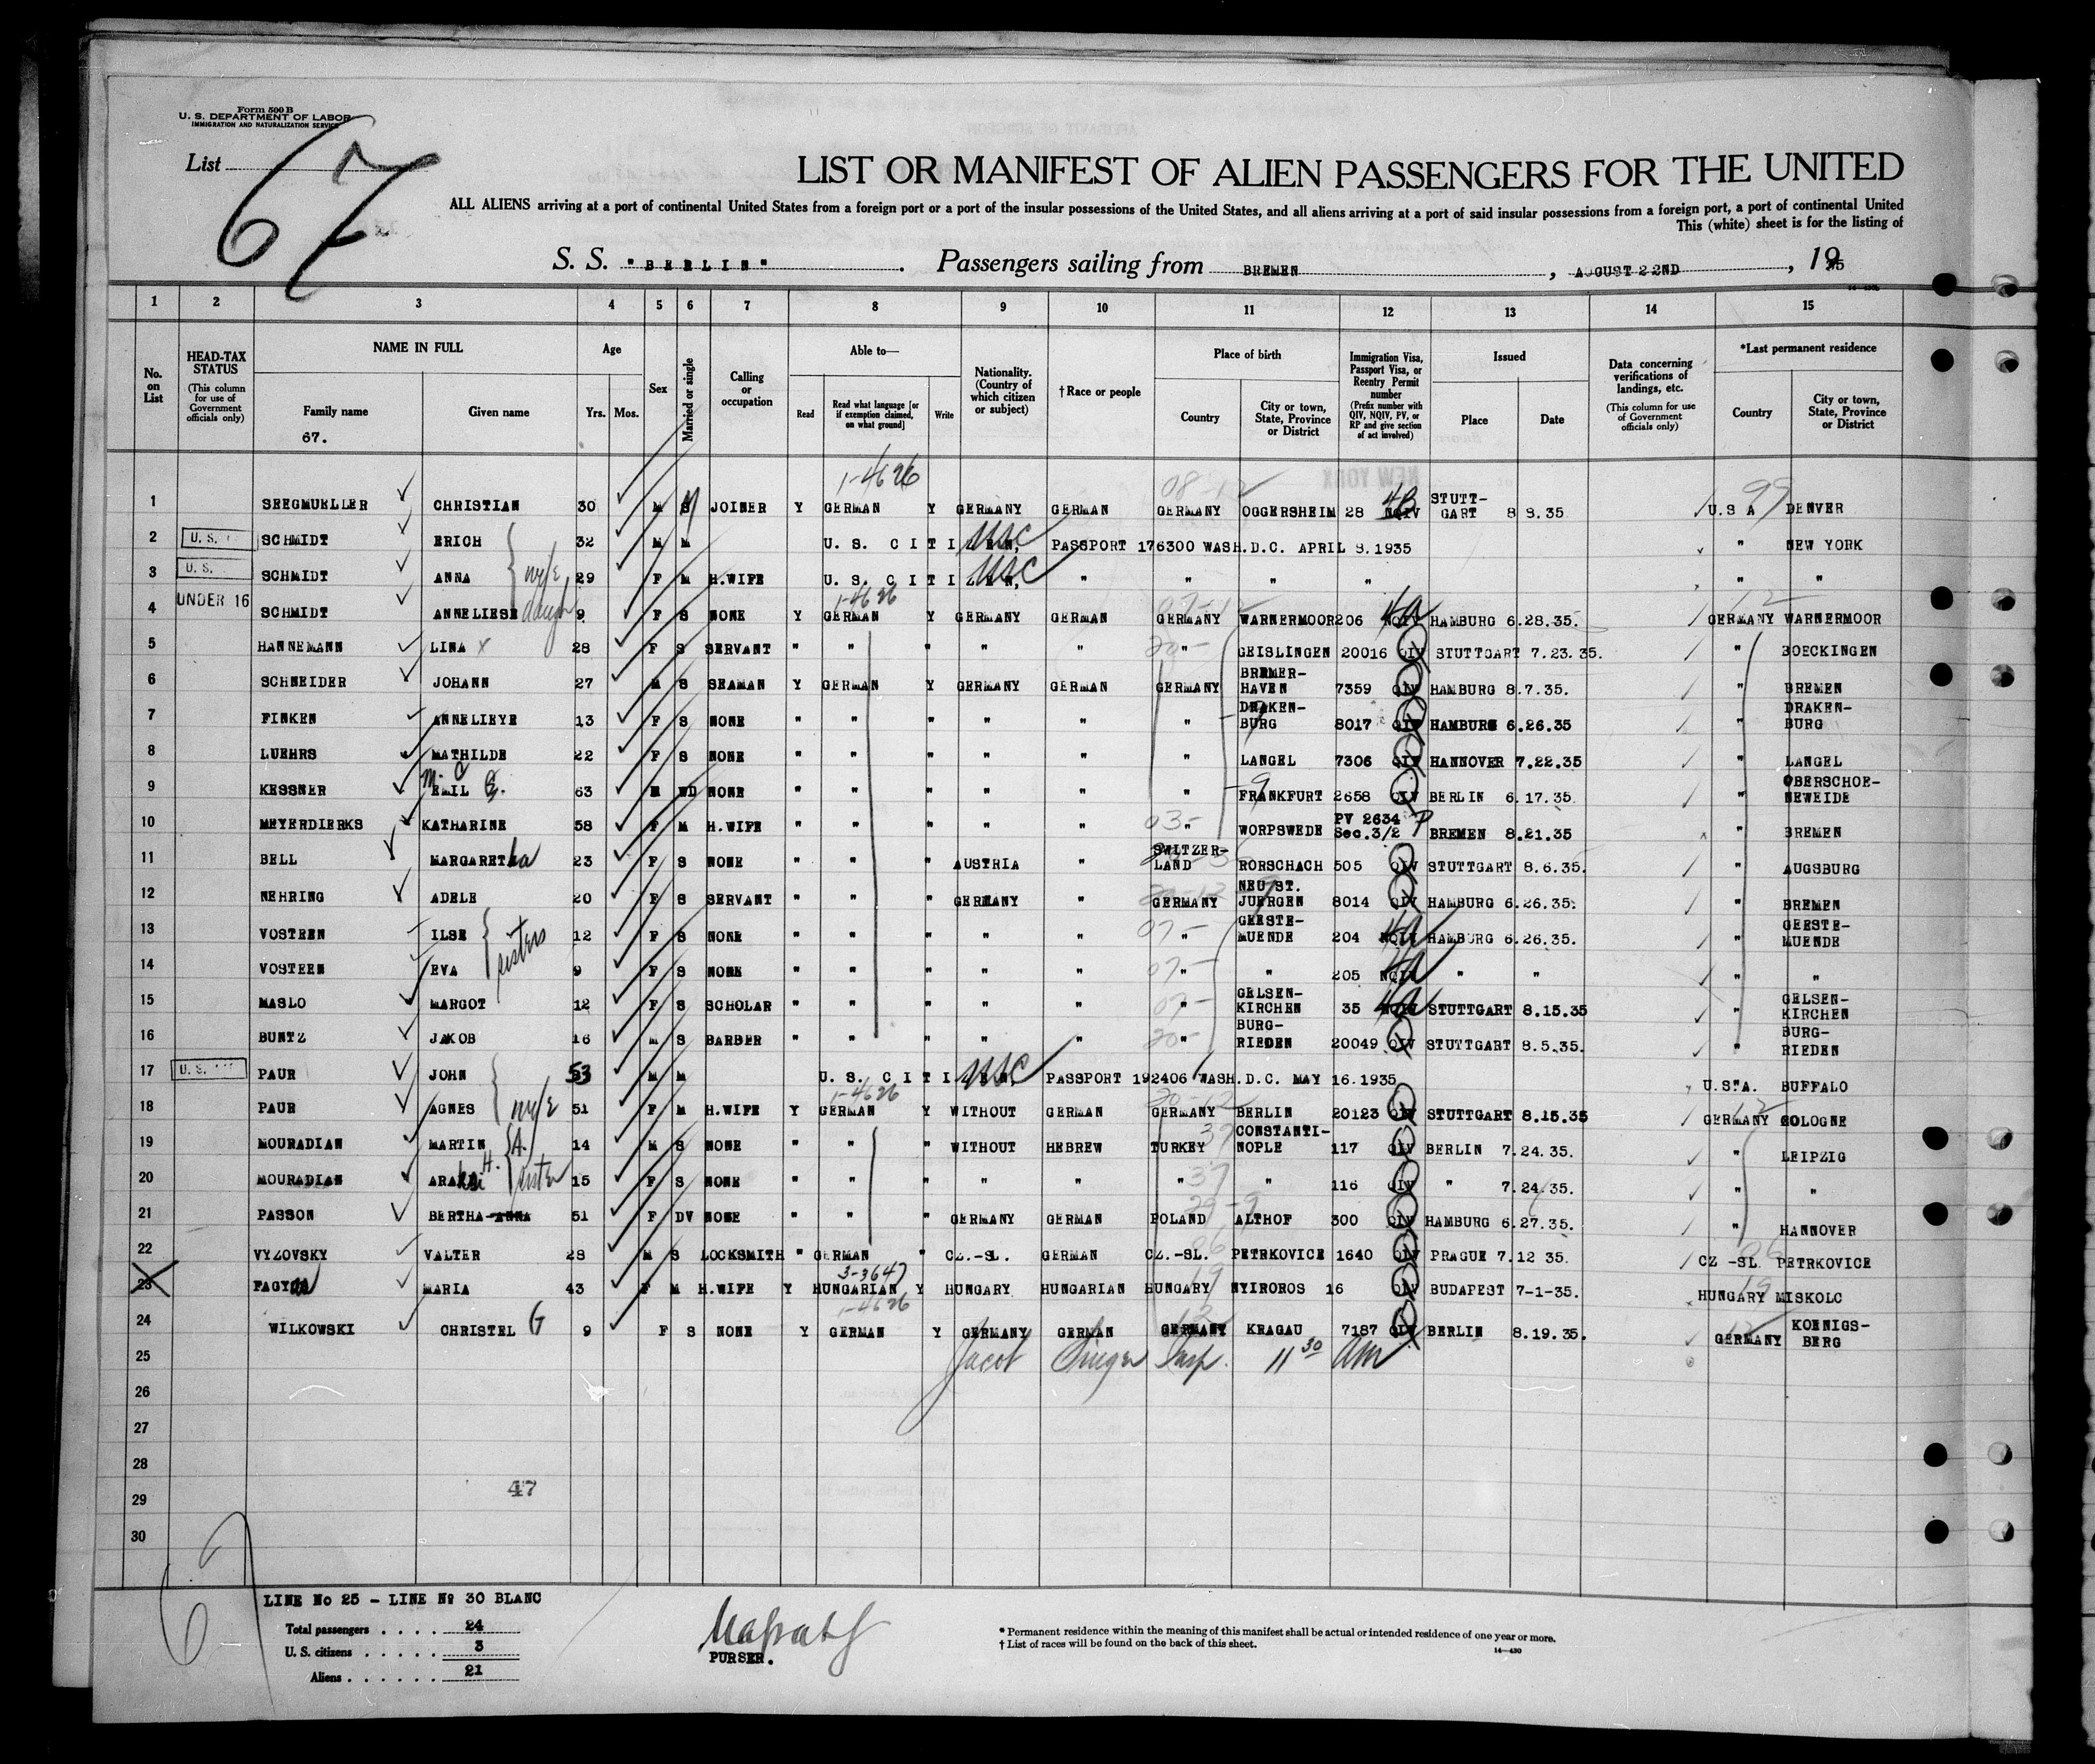 Form 500 B
U. S. DEPARTMENT OF LABOR
IMMIGRATION AND NATURALIZATION SERVICE
List 67
LIST OR MANIFEST OF ALIEN PASSENGERS FOR THE UNITED
ALL ALIENS arriving at a port of continental United States from a foreign port or a port of the insular possessions of the United States, and all aliens arriving at a port of said insular possessions from a foreign port, a port of continental United
This (white) sheet is for the listing of
S. S. "BERLIN". Passengers sailing from BREMEN, AUGUST 22ND, 1935
1 2 3 4 5 6 7 8 9 10 11 12 13 14 15
No. on List
HEAD-TAX STATUS (This column for use of Government officials only)
NAME IN FULL Family name Given name
67.
Age Yrs. Mos.
Sex
Married or single
Calling or occupation
Able to— Read Read what language [or if exemption claimed, on what ground] Write
Nationality. (Country of which citizen or subject)
† Race or people
Place of birth Country City or town, State, Province or District
Immigration Visa, Passport Visa, or Reentry Permit number (Prefix number with QIV, NQIV, PV, or RP and give section of act involved)
Issued Place Date
Data concerning verifications of landings, etc. (This column for use of Government officials only)
*Last permanent residence Country City or town, State, Province or District
NEW YORK
1-4626 08-12 99
1 SEEGMUELLER CHRISTIAN 30 M S JOINER Y GERMAN Y GERMANY GERMAN GERMANY OGGERSHEIM 28 NQIV 4B STUTT-GART 8 8.35 U.S A DENVER
2 U. S. SCHMIDT ERICH 32 M M U. S. CITIZEN, USC PASSPORT 176300 WASH.D.C. APRIL 8.1935 " NEW YORK
3 U. S. SCHMIDT ANNA wife 29 F M H.WIFE U. S. CITIZEN, USC " " " " " "
1-4626 07-12 12
4 UNDER 16 SCHMIDT ANNELIESE daugh 9 F S NONE Y GERMAN Y GERMANY GERMAN GERMANY WARNERMOOR 206 NQIV 4A HAMBURG 6.28.35. GERMANY WARNERMOOR
5 HANNEMANN LINA x 28 F S SERVANT " " " " " 20- " GEISLINGEN 20016 QIV STUTTGART 7.23.35. " BOECKINGEN
6 SCHNEIDER JOHANN 27 M S SEAMAN Y GERMAN Y GERMANY GERMAN GERMANY BREMER-HAVEN 7359 QIV HAMBURG 8.7.35. " BREMEN
7 FINKEN ANNELIEYE 13 F S NONE " " " " " " DRAKEN-BURG 8017 QIV HAMBURG 6.26.35 " DRAKEN-BURG
8 LUEHRS MATHILDE 22 F S NONE " " " " " " LANGEL 7306 QIV HANNOVER 7.22.35 " LANGEL
9 KESSNER EMIL 63 M WD NONE " " " " " " FRANKFURT 2658 QIV BERLIN 6.17.35. " OBERSCHOE-NEWEIDE
10 MEYERDIERKS KATHARINE 58 F M H.WIFE " " " " " 03- " WORPSWEDE PV 2634 Sec.3/2 P BREMEN 8.21.35 " BREMEN
11 BELL MARGARETha 23 F S NONE " " " AUSTRIA " SWITZER-LAND RORSCHACH 505 QIV STUTTGART 8.6.35. " AUGSBURG
12 NEHRING ADELE 20 F S SERVANT " " " GERMANY " GERMANY NEU ST. JUERGEN 8014 QIV HAMBURG 6.26.35. " BREMEN
13 VOSTEEN ILSE sisters 12 F S NONE " " " " " 07- " GEESTE-MUENDE 204 NQIV 4A HAMBURG 6.26.35. " GEESTE-MUENDE
14 VOSTEEN EVA 9 F S NONE " " " " " 07- " " 205 NQIV 4A " " " "
15 MASLO MARGOT 12 F S SCHOLAR " " " " " 07- " GELSEN-KIRCHEN 35 NQIV 4A STUTTGART 8.15.35 " GELSEN-KIRCHEN
16 BUNTZ JAKOB 16 M S BARBER " " " " " 20- " BURG-RIEDEN 20049 QIV STUTTGART 8.5.35. " BURG-RIEDEN
17 U. S. PAUR JOHN 53 M M U. S. CITIZEN, USC PASSPORT 192406 WASH.D.C. MAY 16.1935 U.S.A. BUFFALO
1-4626 20-12 12
18 PAUR AGNES wife 51 F M H.WIFE Y GERMAN Y WITHOUT GERMAN GERMANY BERLIN 20123 QIV STUTTGART 8.15.35 GERMANY COLOGNE
19 MOURADIAN MARTIN A. 14 M S NONE " " " WITHOUT HEBREW TURKEY 37 CONSTANTI-NOPLE 117 QIV BERLIN 7.24.35. " LEIPZIG
20 MOURADIAN ARAKsi H. sister 15 F S NONE " " " " " 37 " " 116 QIV " 7.24.35. " "
21 PASSON BERTHA-ANNA 51 F DV NONE " " " GERMANY GERMAN POLAND ALTHOF 300 QIV HAMBURG 6.27.35. " HANNOVER
22 VYZOVSKY VALTER 28 M S LOCKSMITH " GERMAN " CZ.-SL. GERMAN CZ.-SL. PETRKOVICE 1640 QIV PRAGUE 7.12 35. CZ -SL. PETRKOVICE
3-3647 19 19
23 FAGYAS MARIA 43 F M H.WIFE Y HUNGARIAN Y HUNGARY HUNGARIAN HUNGARY NYIROROS 16 QIV BUDAPEST 7-1-35. HUNGARY MISKOLC
1-4626 12 12
24 WILKOWSKI CHRISTEL G 9 F S NONE Y GERMAN Y GERMANY GERMAN GERMANY KRAGAU 7187 QIV BERLIN 8.19.35. GERMANY KOENIGS-BERG
25 Jacob Singer Insp. 11 30 AM
26
27
28
29 47
30
67
LINE No 25 - LINE No 30 BLANC
Total passengers . . . . 24
U. S. citizens . . . . . 3
Aliens . . . . . . 21
PURSER.
* Permanent residence within the meaning of this manifest shall be actual or intended residence of one year or more.
† List of races will be found on the back of this sheet.
14—430